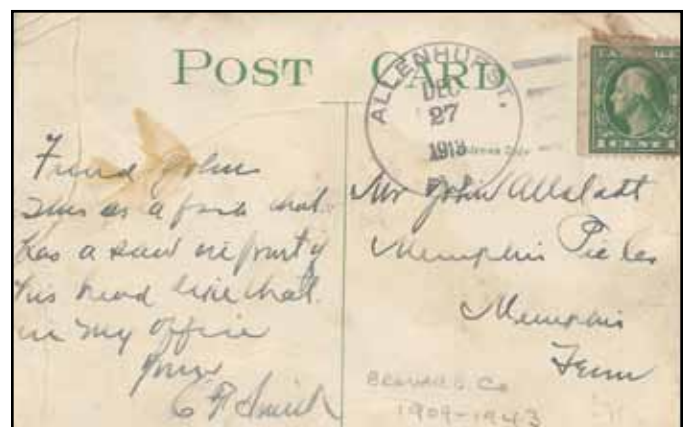 POST CARD
ALLENHURST,
DEC
27
1913
1 CENT 1
Friend John
This is a fish that
has a saw in front of
his head like that
in my office
Yours
C F Smith
Mr John Allstadt
Memphis
Memphis
Tenn
BREVARD Co
1909-1943